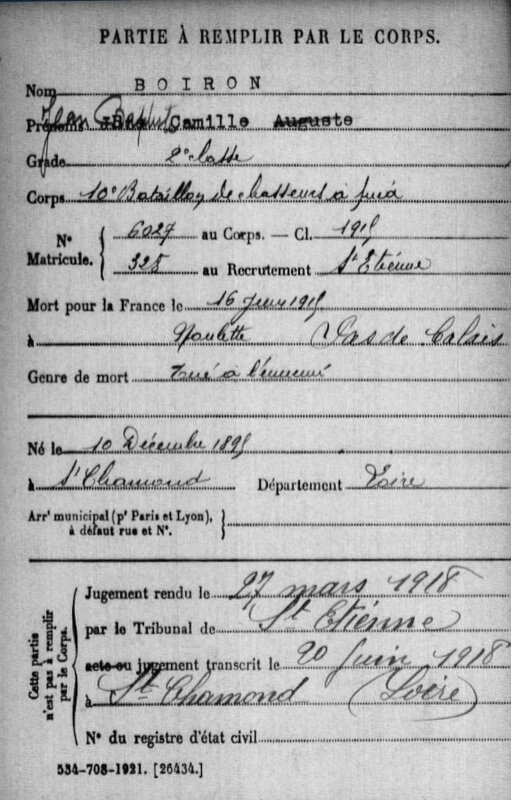 PARTIE À REMPLIR PAR LE CORPS.
Nom BOIRON
Prénoms Jean Baptiste Camille Auguste
Grade 2e classe
Corps 10e Bataillon de chasseurs à pied
N° Matricule. 6027 au Corps. — Cl. 1915
328 au Recrutement St Etienne
Mort pour la France le 16 Juin 1915
à Noulette Pas de Calais
Genre de mort Tué à l'ennemi
Né le 10 Décembre 1895
à St Chamond Département Loire
Arrt municipal (pr Paris et Lyon), à défaut rue et N°.
Cette partie n'est pas à remplir par le Corps.
Jugement rendu le 27 mars 1918
par le Tribunal de St Etienne
acte ou jugement transcrit le 20 Juin 1918
à St Chamond (Loire)
N° du registre d'état civil
534-708-1921. [26434.]